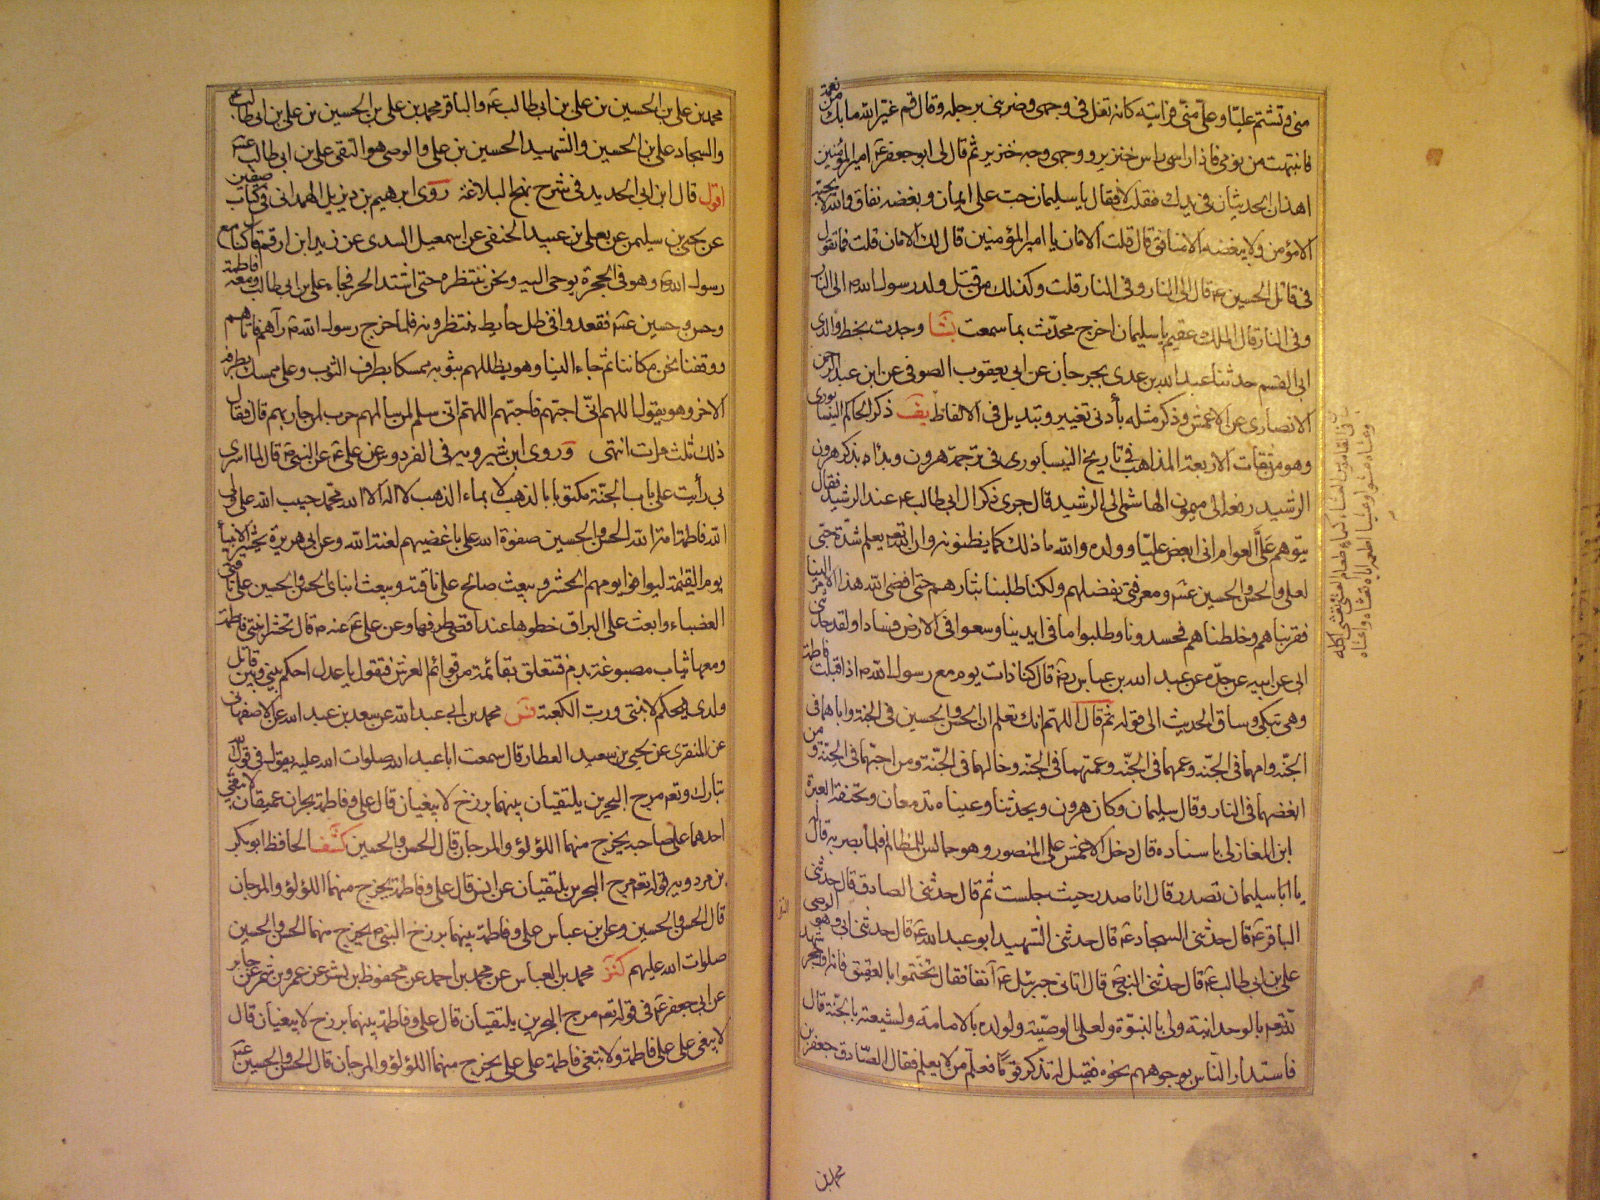 مني وتشتم عليا وعلي مني فرأيته كأنه تفل في وجهي وضربني برجله وقال قم غير الله ما بك من نعمة
فانتبهت من نومي فاذا رأسي رأس خنزير ووجهي وجه خنزير ثم قال لي ابو جعفر امير المؤمنين
اهذان الحديثان في يدك فقلت لا فقال يا سليمان حب علي ايمان وبغضه نفاق والله لا يحبه
الا مؤمن ولا يبغضه الا منافق قال قلت الامان يا امير المؤمنين قال لك الامان قلت فما تقول
في قاتل الحسين ع قال الى النار وفي النار قلت وكذلك من قتل ولد رسول الله ص الى النار
وفي النار قال الملك عقيم يا سليمان اخرج فحدث بما سمعت بشا وجدت بخط والدي
ابي القسم حدثنا عبد الله بن عدي بجرجان عن ابي يعقوب الصوفي عن ابن عبد الرحمن
الانصاري عن الاعمش وذكر مثله بأدنى تغيير وتبديل في الالفاظ يف ذكر الحاكم النيسابوري
وهو من ثقات الاربعة المذاهب في تاريخ النيسابوري في ترجمة هرون وبداه بذكر هرون
الرشيد رفعه الى ميمون الهاشمي الى الرشيد قال جرى ذكر ال ابي طالب ع عند الرشيد فقال
يتوهم علي العوام اني ابغض عليا وولده والله ما ذلك كما يظنونه وان الله تعه يعلم شدة حبي
لعلي والحسن والحسين عتم ومعرفتي بفضلهم ولكنا طلبنا بثارهم حتى افضى الله هذا الامر الينا
فقربناهم وخلطناهم فحسدونا وطلبوا ما في ايدينا وسعوا في الارض فسادا ولقد حدثني
ابي عن ابيه عن جده عن عبد الله بن عباس رض قال كنا ذات يوم مع رسول الله ص اذا قبلت فاطمة
وهي تبكي وساق الحديث الى قوله ثم قال اللهم انك تعلم ان الحسن والحسين في الجنة واباهما في
الجنه وامهما في الجنه وعمهما في الجنه وعمتهما في الجنه وخالهما في الجنة ومن احبهما في الجنة ومن
ابغضهما في النار وقال سليمان وكان هرون يحدثنا وعيناه تدمعان وتخنقه العبرة
ابن المغازلي باسناده قال دخل الاعمش على المنصور وهو جالس للمظالم فلما بصر به قال
يا ابا سليمان تصدر قال انا صدر حيث جلست ثم قال حدثني الصادق قال حدثني
الباقر ع قال حدثني السجاد ع قال حدثني الشهيد ابو عبد الله ع قال حدثني ابي وهو الوصي
علي بن ابي طالب ع قال حدثني النبي ص قال اتاني جبرئيل ع آنفا فقال تختموا بالعقيق فانه اول حجر شهد
لله تعه بالوحدانية ولي بالنبوة ولعلي بالوصية ولولده بالامامة ولشيعته بالجنة قال
فاستدار الناس بوجوههم نحوه فقيل له تذكر قوما فعلم من لا يعلم فقال الصادق جعفر بن
محمد بن
محمد بن علي بن الحسين بن علي بن ابي طالب ع والباقر محمد بن علي بن الحسين بن علي بن ابي طالب
والسجاد علي بن الحسين والشهيد الحسين بن علي والوصي هو التقي علي بن ابي طالب ع
اقول قال ابن ابي الحديد في شرح نهج البلاغة روى ابرهيم بن ديزيل الهمداني في كتاب صفين
عن يحيى بن سليمن عن يعلى بن عبيد الحنفي عن اسمعيل السدي عن زيد ابن ارقم قال كنا مع
رسول الله ص وهو في الحجرة يوحى اليه ونحن ننتظره حتى اشتد الحر فجاء علي بن ابي طالب ومعه فاطمة
وحسن وحسين عتم فقعدوا في ظل حايط ينتظرونه فلما خرج رسول الله ص رآهم فاتاهم
ووقفنا نحن مكاننا ثم جاء الينا وهو يظللهم بثوبه ممسكا بطرف الثوب وعلي ممسك بطرفه
الاخر وهو يقول اللهم اني احبهم فاحبهم اللهم اني سلم لمن سالمهم حرب لمن حاربهم قال فقال
ذلك ثلث مرات انتهى وروى ابن شيرويه في الفردوس عن علي ع عن النبي ص قال لما اسري
بي رأيت على باب الجنة مكتوبا بالذهب لا بماء الذهب لا اله الا الله محمد حبيب الله علي ولي
الله فاطمة امة الله الحسن والحسين صفوة الله على باغضيهم لعنة الله وعن ابي هريرة تحشر الانبياء
يوم القيمة ليوافوا يومهم المحشر ويبعث صالح على ناقته ويبعث ابناي الحسن والحسين على ناقتي
العضباء وابعث على البراق خطوها عند اقصى طرفها وعن علي ع عنه ص قال تحشر ابنتي فاطمة
ومعها ثياب مصبوغة بدم فتتعلق بقائمة من قوائم العرش فتقول يا عدل احكم بيني وبين قاتل
ولدي فيحكم لابنتي ورب الكعبة فس محمد بن ابي عبد الله عن سعد بن عبد الله عن الاصفهاني
عن المنقري عن يحيى بن سعيد العطار قال سمعت ابا عبد الله صلوات الله عليه يقول في قول الله
تبارك وتعه مرج البحرين يلتقيان بينهما برزخ لا يبغيان قال علي وفاطمة بحران عميقان لا يبغي
احدهما على صاحبه يخرج منهما اللؤلؤ والمرجان قال الحسن والحسين كشف الحافظ ابو بكر
بن مردويه قوله تعه مرج البحرين يلتقيان عن انس قال علي وفاطمة يخرج منهما اللؤلؤ والمرجان
قال الحسن والحسين وعن ابن عباس علي وفاطمة بينهما برزخ النبي ص يخرج منهما الحسن والحسين
صلوات الله عليهم كنز محمد بن العباس عن محمد بن احمد عن محفوظ بن بشر عن عمرو بن شمر عن جابر
عن ابي جعفر ع في قوله تعه مرج البحرين يلتقيان قال علي وفاطمة بينهما برزخ لا يبغيان قال
لا يبغي علي على فاطمة ولا تبغي فاطمة على علي يخرج منهما اللؤلؤ والمرجان قال الحسن والحسين عتم